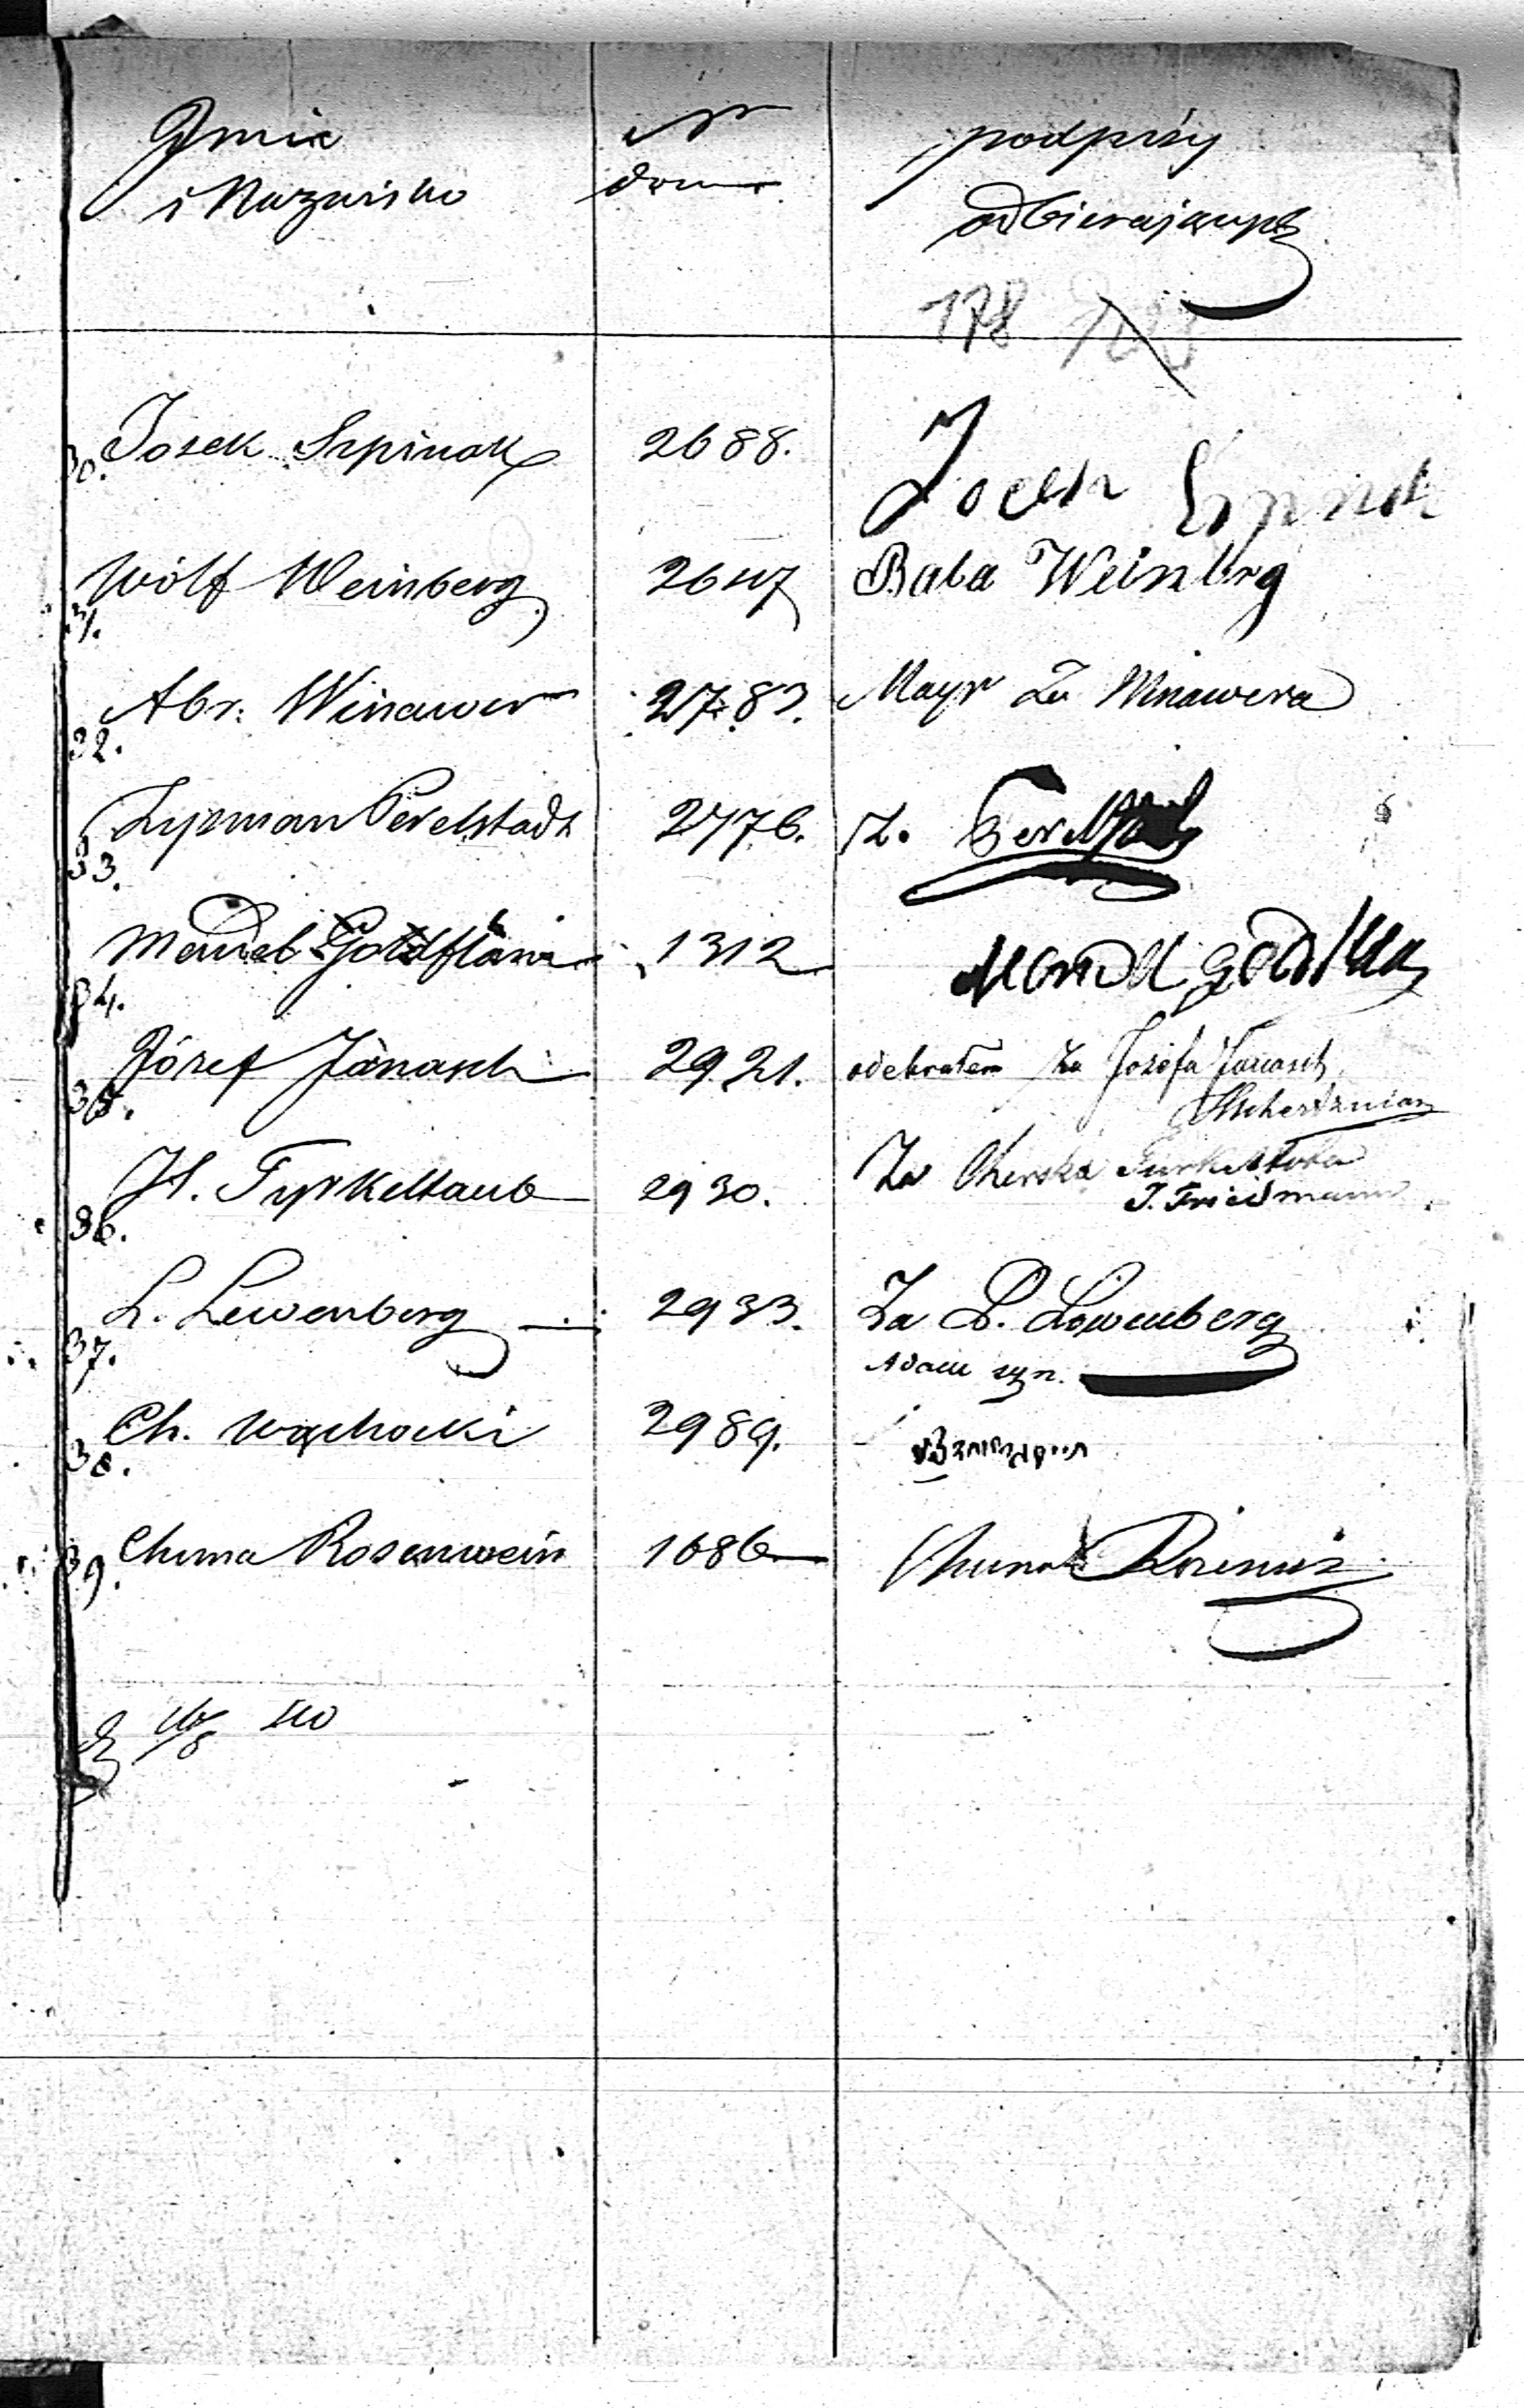 Imie
i Nazwisko
Nr
domu
podpisy
odbierających
178
30. Josek Szpinak 2688.
31. Wólf Weinberg 2647 Baba Weinbrg
32. Abr. Winawer 2783. Mayr Za Winawera
33. Lypman Perelstadt 2776. L.
34. Mendel Goldflam 1312 Mendel
35. Józef Janasch 2921. odebrałem za Jozefa Janasch
36. H. Tyrkeltaub 2930. Za Herska Turkeltoba
J. Friedmann
37. L. Lewenberg 2933. Za L. Lowenberg
Adam syn.
38. Ch. Wąchocki 2989.
39. Chuna Rosenwein 1686 Chuna